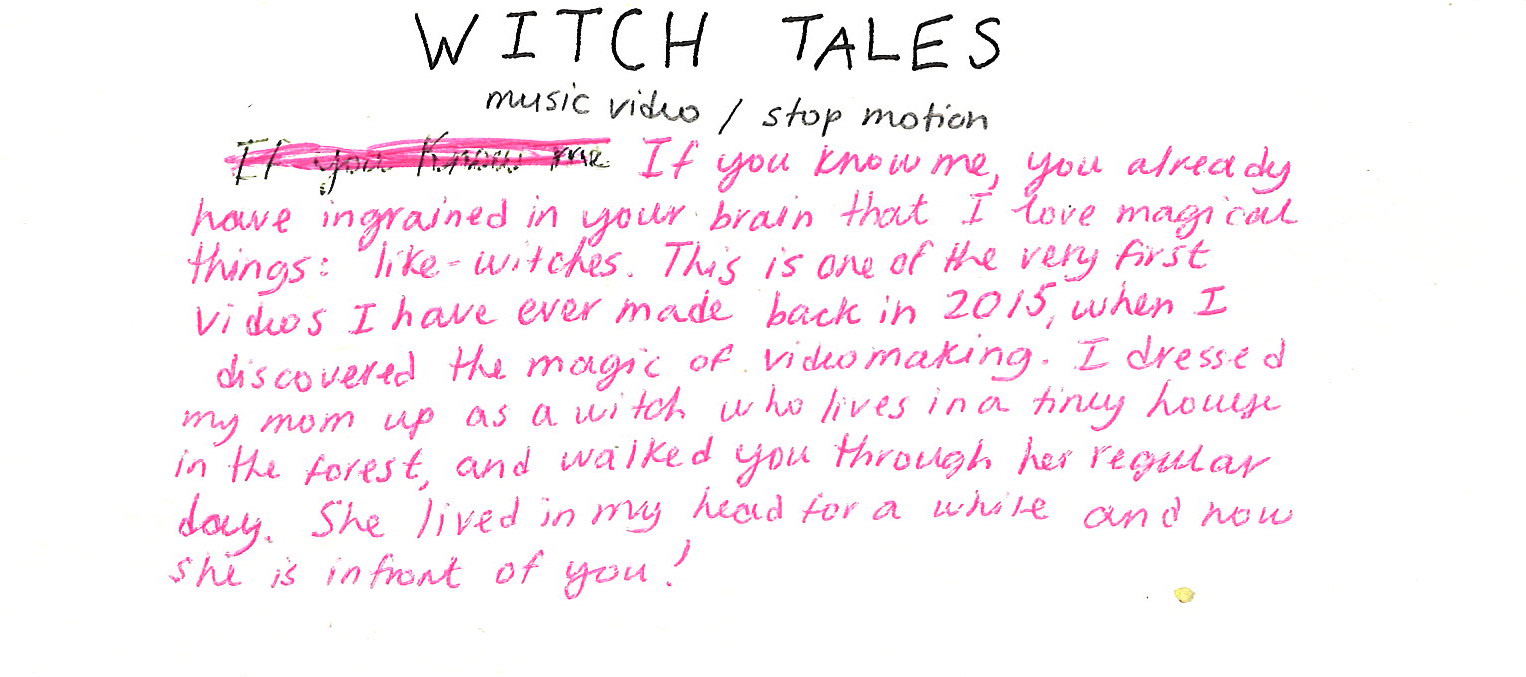 WITCH TALES
music video / stop motion
If you know me If you know me, you already
have ingrained in your brain that I love magical
things: like-witches. This is one of the very first
videos I have ever made back in 2015, when I
discovered the magic of videomaking. I dressed
my mom up as a witch who lives in a tiny house
in the forest, and walked you through her regular
day. She lived in my head for a while and now
she is infront of you!